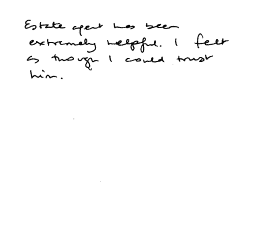 Estate agent has been
extremely helpful. I felt
as though I could trust
him.